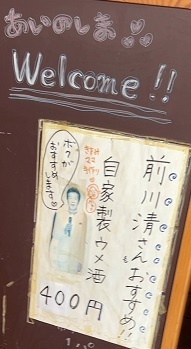 あいのしま
Welcome!!
前川清さんおすすめ!!
自家製ウメ酒
ボクが
おすすめ
します
400円